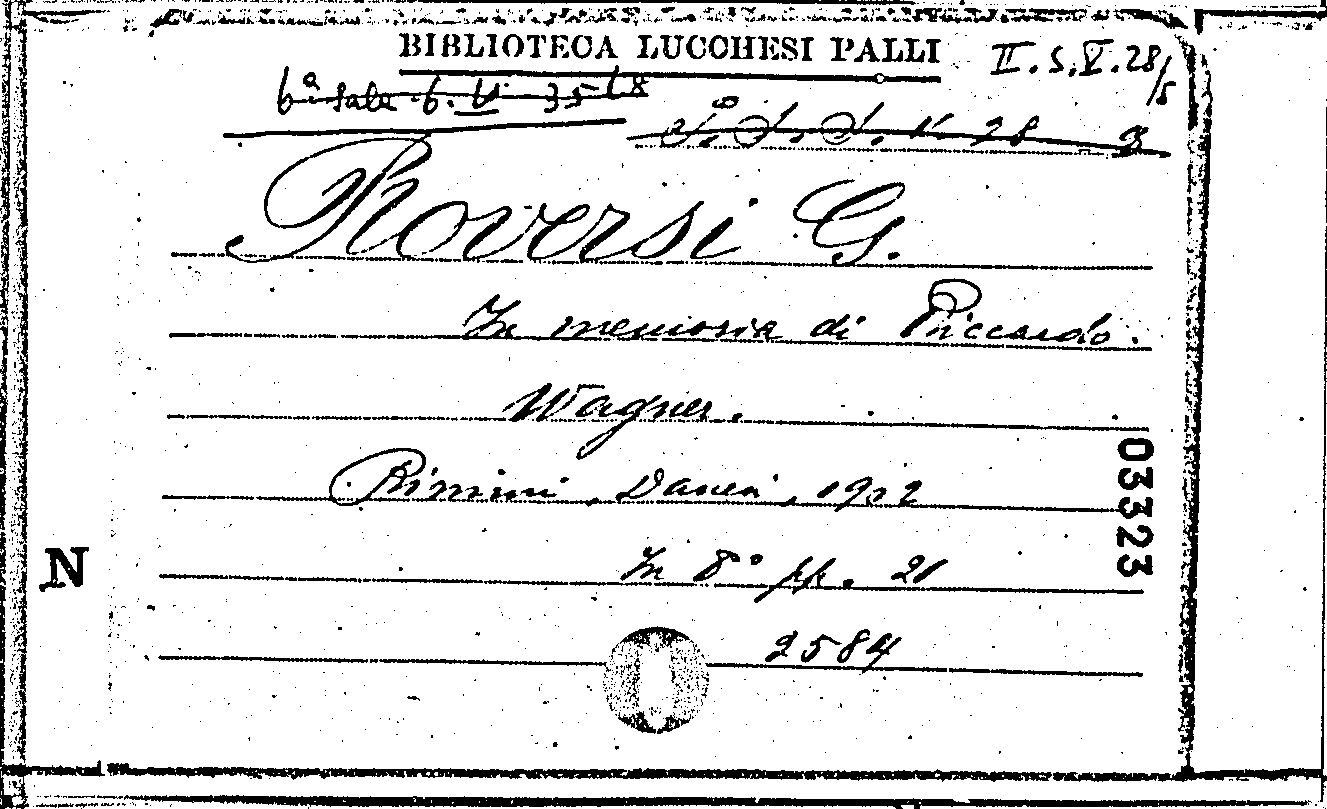 BIBLIOTECA LUCCHESI PALLI
II. S. V. 28/5
6ª Sala 6. VI 35
Roversi G.
In memoria di Riccardo
Wagner.
Rimini, Danesi, 1902
In 8° pp. 21
2584
N
03323